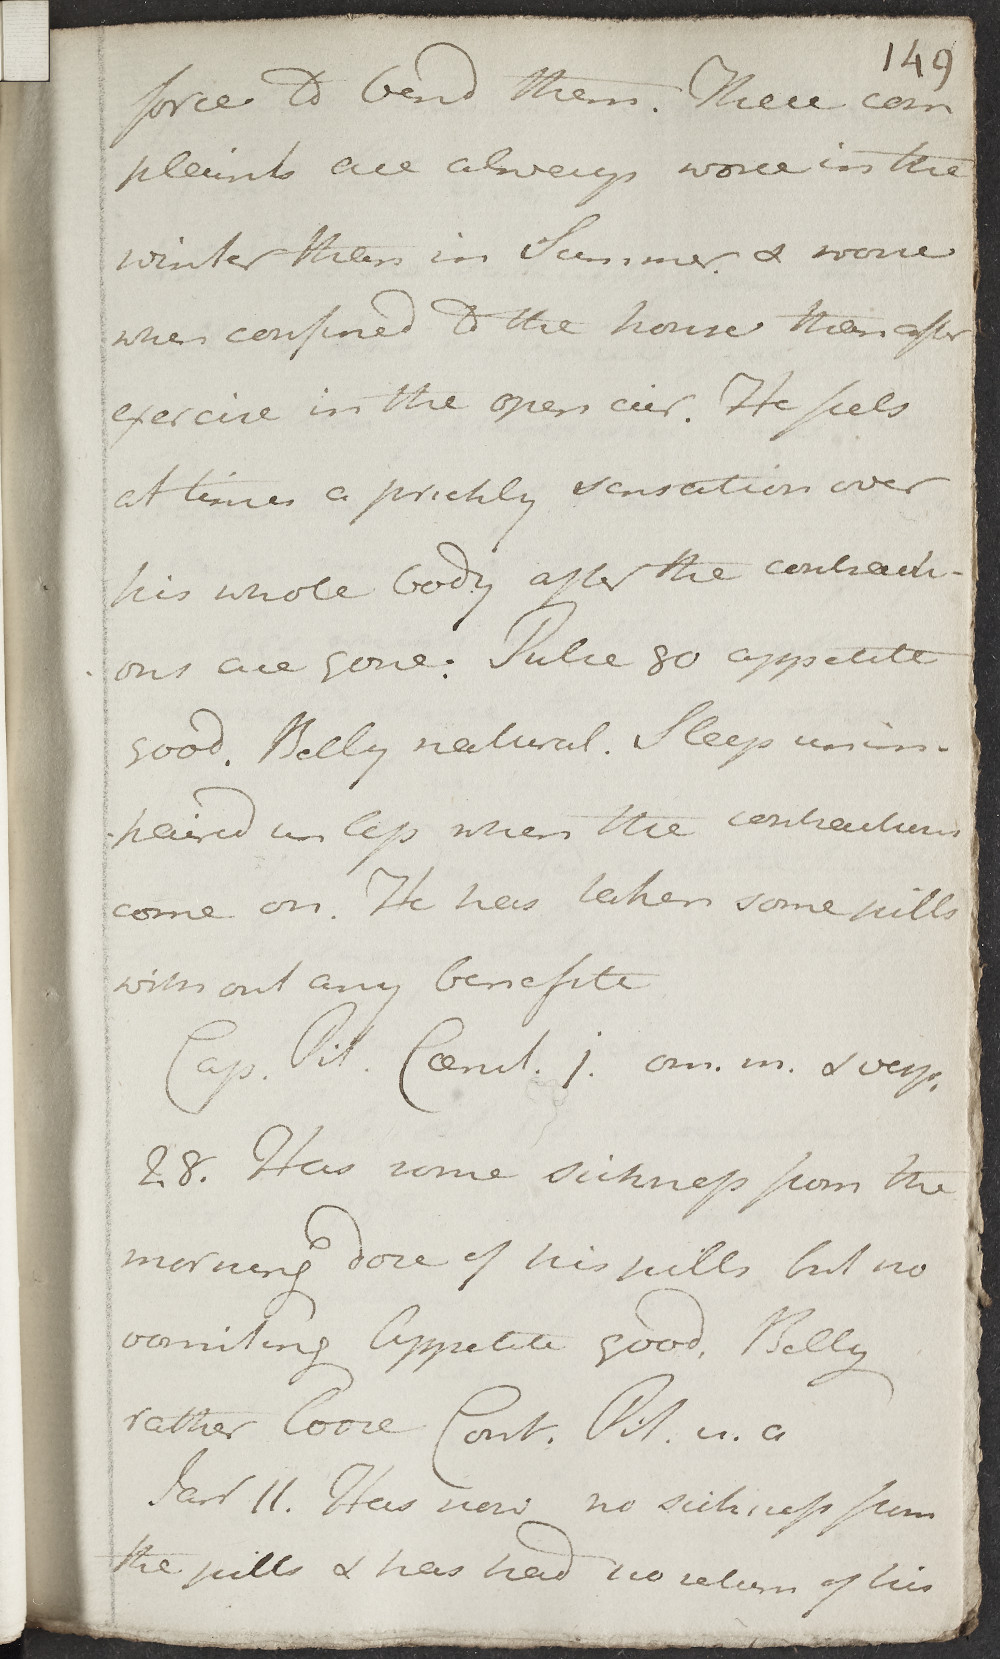 149
force to bend them. These com
plaints are always worse in the
winter than in Summer & worse
when confined to the house than after
exercise in the open air. He feels
at times a prickly sensation over
his whole body after the contracti-
ons are gone. Pulse 80 appetite
good. Belly natural. Sleep unim-
paired unless when the contractions
come on. He has taken some pills
without any benefite
Cap. Pil. Cærul. j. om. m. & vesp.
28. Has some sickness from the
morning dose of his pills but no
vomiting Appetite good. Belly
rather loose Cont. Pil. u. a
Jan 11. Has now no sickness from
the pills & has had no return of his